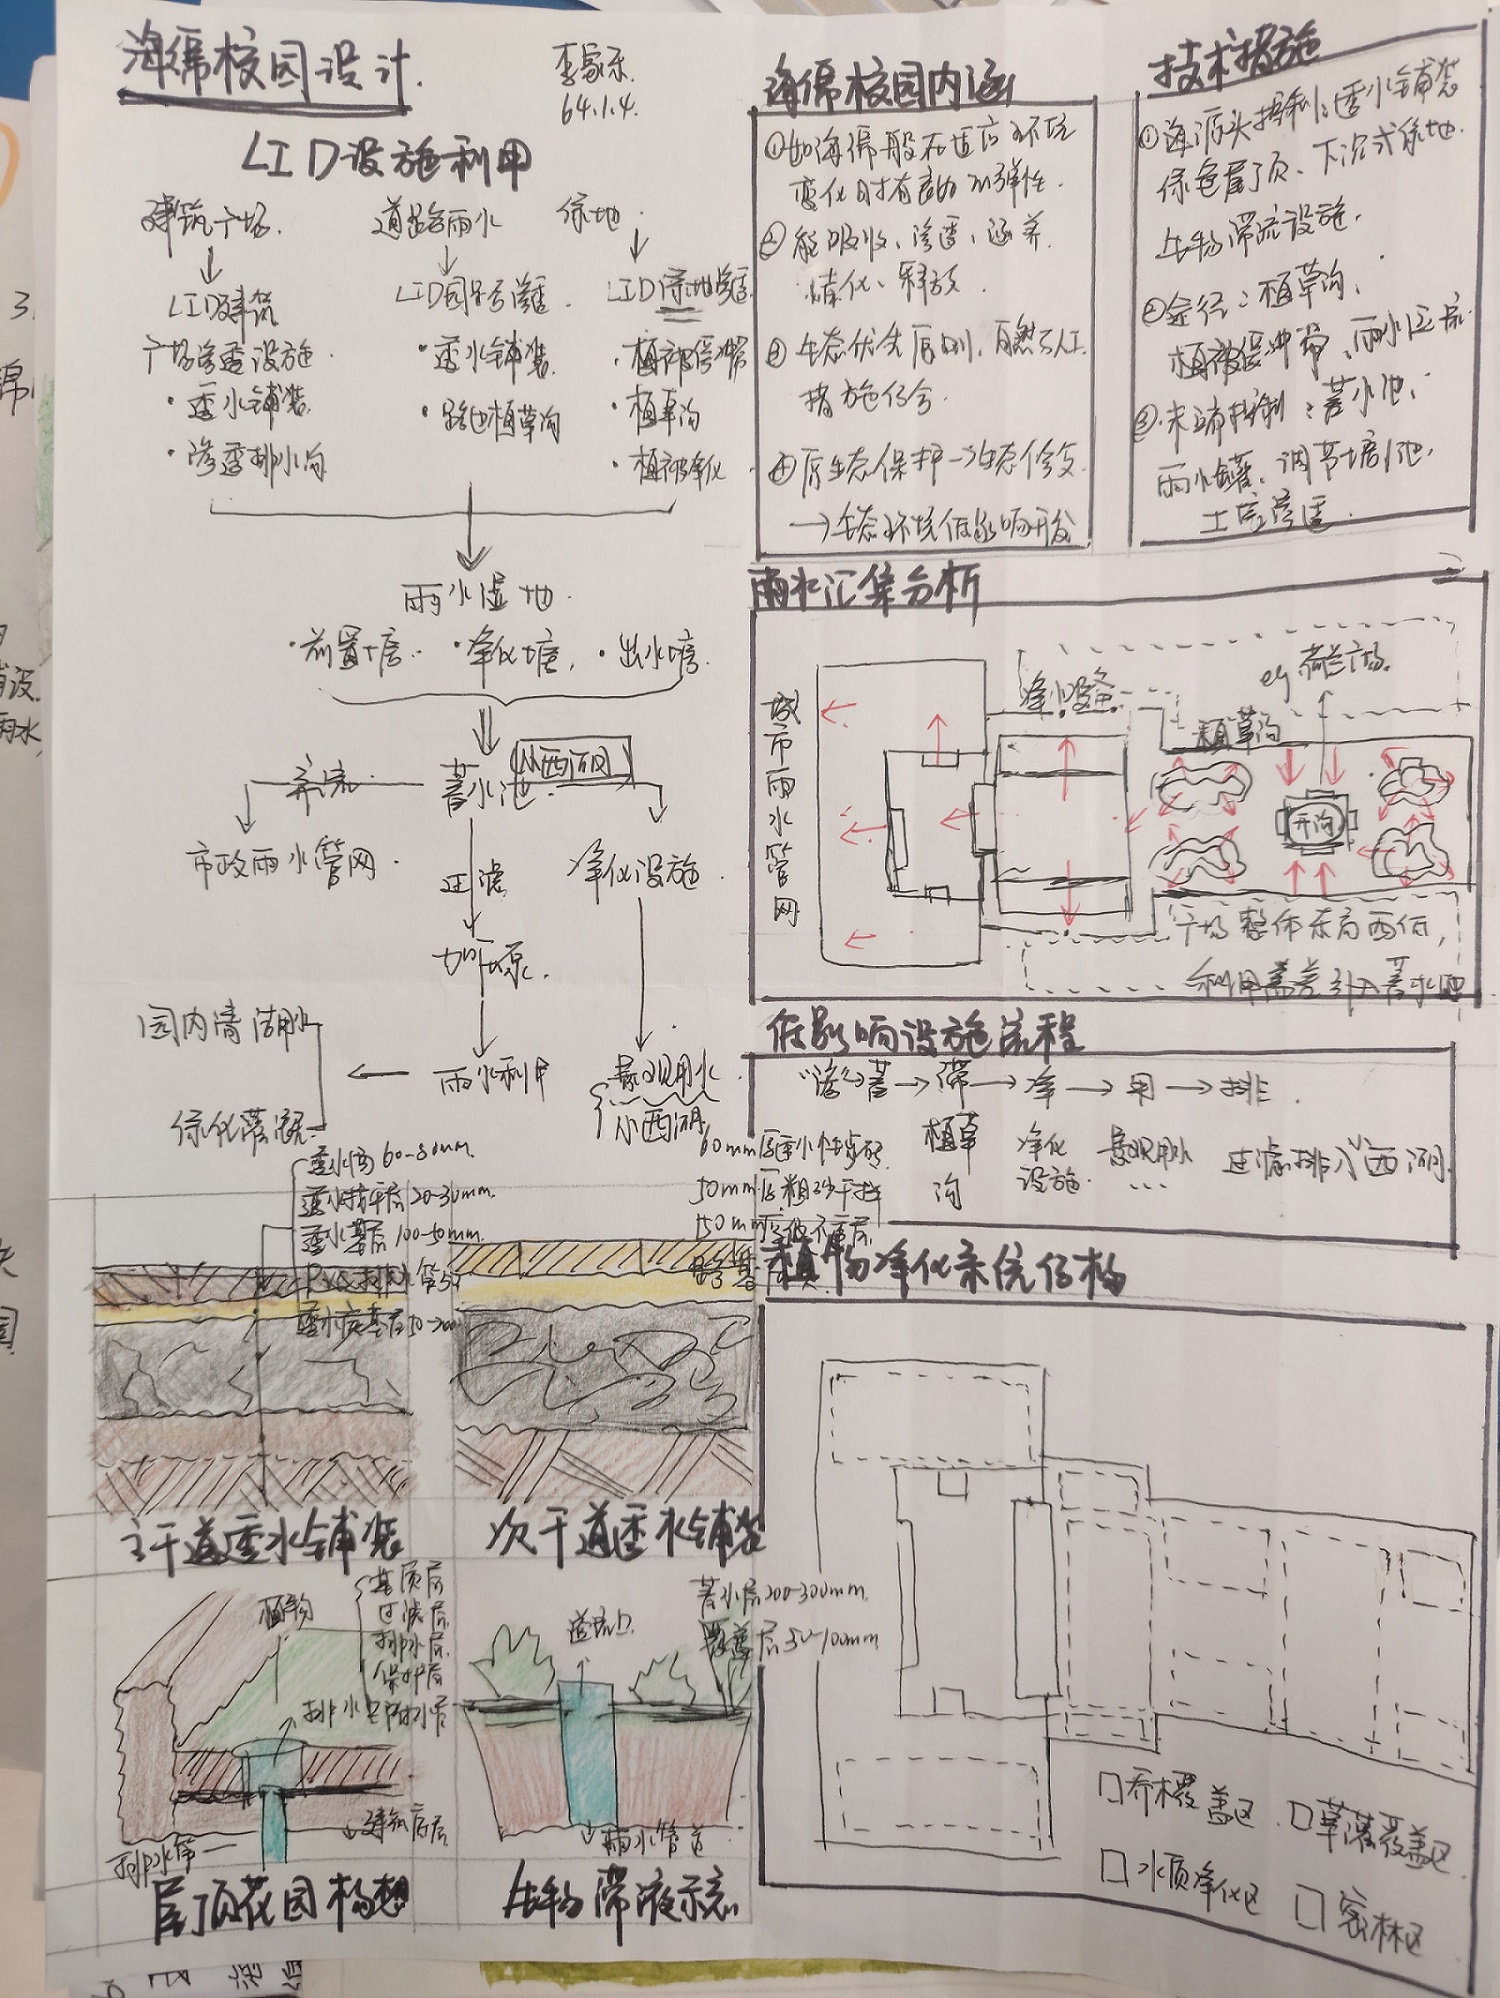 海绵校园设计.
64.1.4.
LID设施利用
建筑广场.
↓
LID建筑
广场渗透设施
·透水铺装
·渗透排水沟
道路雨水
↓
LID园路渗透.
·透水铺装.
·路边植草沟
绿地.
↓
LID绿地渗透.
·植被缓冲带
·植草沟
·植被净化
雨水湿地.
·前置塘. ·净化塘, ·出水塘.
弃流 蓄水池. 小西湖
市政雨水管网.
过滤
净化设施.
雨水利用
园内清湖水
绿化灌溉
景观用水
小西湖
透水面60-80mm.
透水找平层20-30mm.
透水基层100-50mm.
PVC排水管
透水底基层
主干道透水铺装
60mm厚透水性步砖
50mm厚粗砂干拌
150mm厚
路基
次干道透水铺装
植物
基质层
过滤层
排水层
保护层
防水层
排水
建筑底层
排水管
屋顶花园构想
溢流口
蓄水层200-300mm.
覆盖层50-100mm
雨水管道
生物滞液示意
海绵校园内涵
①如海绵般在适应环境
变化时有良好的弹性.
②能吸收、渗透、涵养.
净化、释放.
③生态优先原则,自然与人工
措施结合.
④原生态保护→生态修复
→生态环境低影响开发
技术措施
①源头控制:透水铺装
绿色屋顶、下沉式绿地.
生物滞流设施.
②途径:植草沟、
植被缓冲带、雨水
③末端控制:蓄水池、
雨水罐、调节塘/池、
土壤渗透.
雨水汇集分析
城市雨水管网
净水设备
eg 荷兰广场.
植草沟
开沟
广场整体东高西低,
利用高差引入蓄水池
低影响设施流程
“渗”→蓄→滞→净→用→排.
植草沟
净化设施.
景观用水
...
过滤排入小西湖.
植物净化系统结构
□乔木覆盖区. □草灌覆盖区.
□水质净化区 □密林区